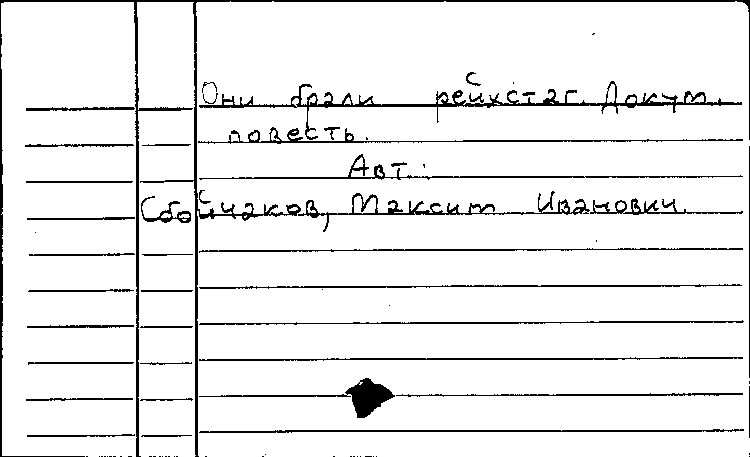 Они брали рейхстаг. Докум.
повесть.
Авт.:
Сбойчаков, Максим Иванович.